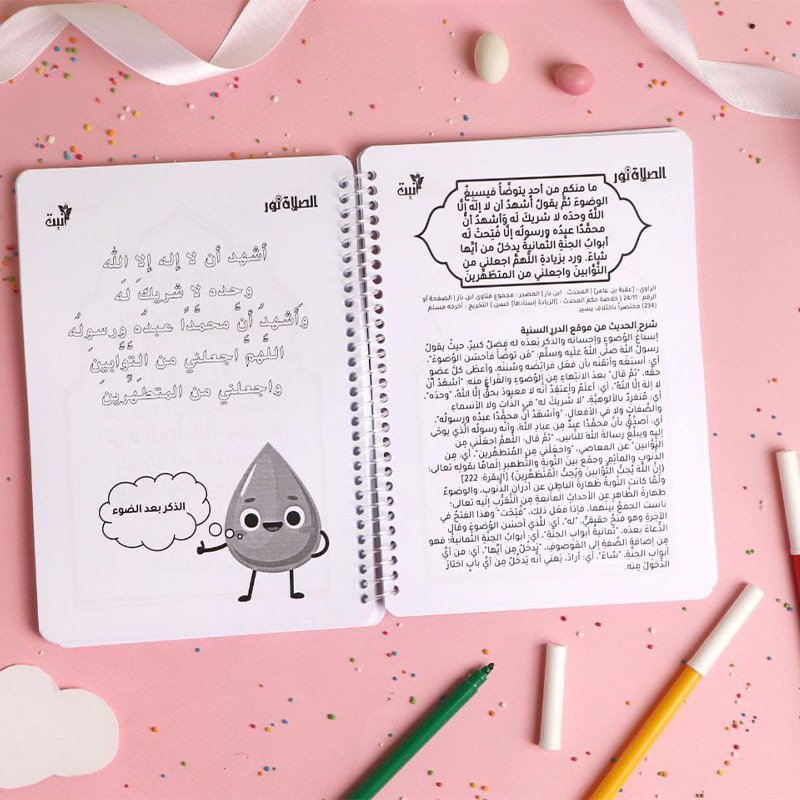 الصلاة نور
أنبت
ما منكم من أحدٍ يتوضَّأُ فيسبِغُ
الوضوءَ ثمَّ يقولُ أشهدُ أن لا إلَهَ إلَّا
اللَّهُ وحدَه لا شريكَ له وأشهدُ أنَّ
محمَّدًا عبدُه ورسولُه إلَّا فُتِحتْ له
أبوابُ الجنَّةِ الثَّمانيةُ يدخلُ من أيِّها
شاءَ. ورد بزيادةِ اللَّهمَّ اجعلني من
التَّوَّابينَ واجعلني من المتطَهِّرينَ
الراوي : [عقبة بن عامر] | المحدث : ابن باز | المصدر : مجموع فتاوى ابن باز | الصفحة أو
الرقم: 24/11 | خلاصة حكم المحدث : [الزيادة إسنادها] حسن | التخريج : أخرجه مسلم
(234) مختصراً باختلاف يسير.
شرح الحديث من موقع الدرر السنية
إسباغُ الوُضوءِ وإحسانُه والذِّكرُ بَعدَه له فضلٌ كبيرٌ، حيثُ يقولُ
رسولُ اللهِ صلَّى اللهُ عليه وسلَّم: "مَن توضَّأ فأحسَن الوُضوءَ"،
أي: أسبَغَه وأتقَنَه بأن فعَل فرائضَه وسُنَنَه، وأعطَى كلَّ عضوٍ
حقَّه، "ثمَّ قال" بعدَ الانتهاءِ مِن الوُضوءِ والفراغِ منه: "أشهَدُ أنْ
لا إلهَ إلَّا اللهُ"، أي: أعلَمُ وأعتقِدُ أنَّه لا معبودَ بحقٍّ إلَّا اللهُ، "وحدَه"،
أي: مُنفرِدٌ بالألوهيَّةِ، "لا شريكَ له" في الذَّاتِ ولا الأسماءِ
والصِّفاتِ ولا في الأفعالِ، "وأشهَدُ أنَّ محمَّدًا عبدُه ورسولُه"،
أي: أُصدِّقُ بأنَّ محمَّدًا عبدٌ مِن عبادِ اللهِ، وأنَّه رسولُه الَّذي يوحَى
إليه ويبلِّغُ رسالةَ اللهِ للنَّاسِ، "ثمَّ قال: اللَّهمَّ اجعَلْني مِن
التَّوَّابين" عن المعاصي، "واجعَلْني مِن المُتطهِّرين"، أي: مِن
الذُّنوبِ والمآثِمِ، وجمَع بينَ التَّوبةِ والتَّطهيرِ إلمامًا بقولِه تعالى:
{إِنَّ اللَّهَ يُحِبُّ التَّوَّابِينَ وَيُحِبُّ الْمُتَطَهِّرِينَ} [البقرة: 222]
ولَمَّا كانتِ التَّوبةُ طهارةَ الباطنِ عن أدرانِ الذُّنوبِ، والوضوءُ
طهارةَ الظَّاهرِ عن الأحداثِ المانعةِ مِن التَّقرُّبِ إليه تعالى؛
ناسَبَ الجمعُ بينَهما، فإذا فعَل ذلك، "فُتِحَتْ" وهذا الفتحُ في
الآخِرةِ وهو فتحٌ حقيقيٌّ، "له"، أي: للَّذي أحسَن الوُضوءَ وقال
الدُّعاءَ بعدَه، "ثمانيةُ أبوابِ الجنَّةِ"، أي: أبوابُ الجنَّةِ الثَّمانيةُ؛ فهو
مِن إضافةِ الصِّفةِ إلى المَوصوفِ، "يَدخُلُ مِن أيِّها"، أي: مِن أيِّ
أبوابِ الجنَّةِ، "شاءَ"، أي: أرادَ، يَعني أنَّه يَدخُلُ مِن أيِّ بابٍ اختارَ
الدُّخولَ مِنه.
الصلاة نور
أنبت
أشهد أن لا إله إلا الله
وحده لا شريكَ له
وأشهدُ أنَّ محمَّدًا عبدُه ورسولُه
اللَّهمَّ اجعلني من التَّوَّابينَ
واجعلني من المتطَهِّرينَ
الذكر بعد الضوء